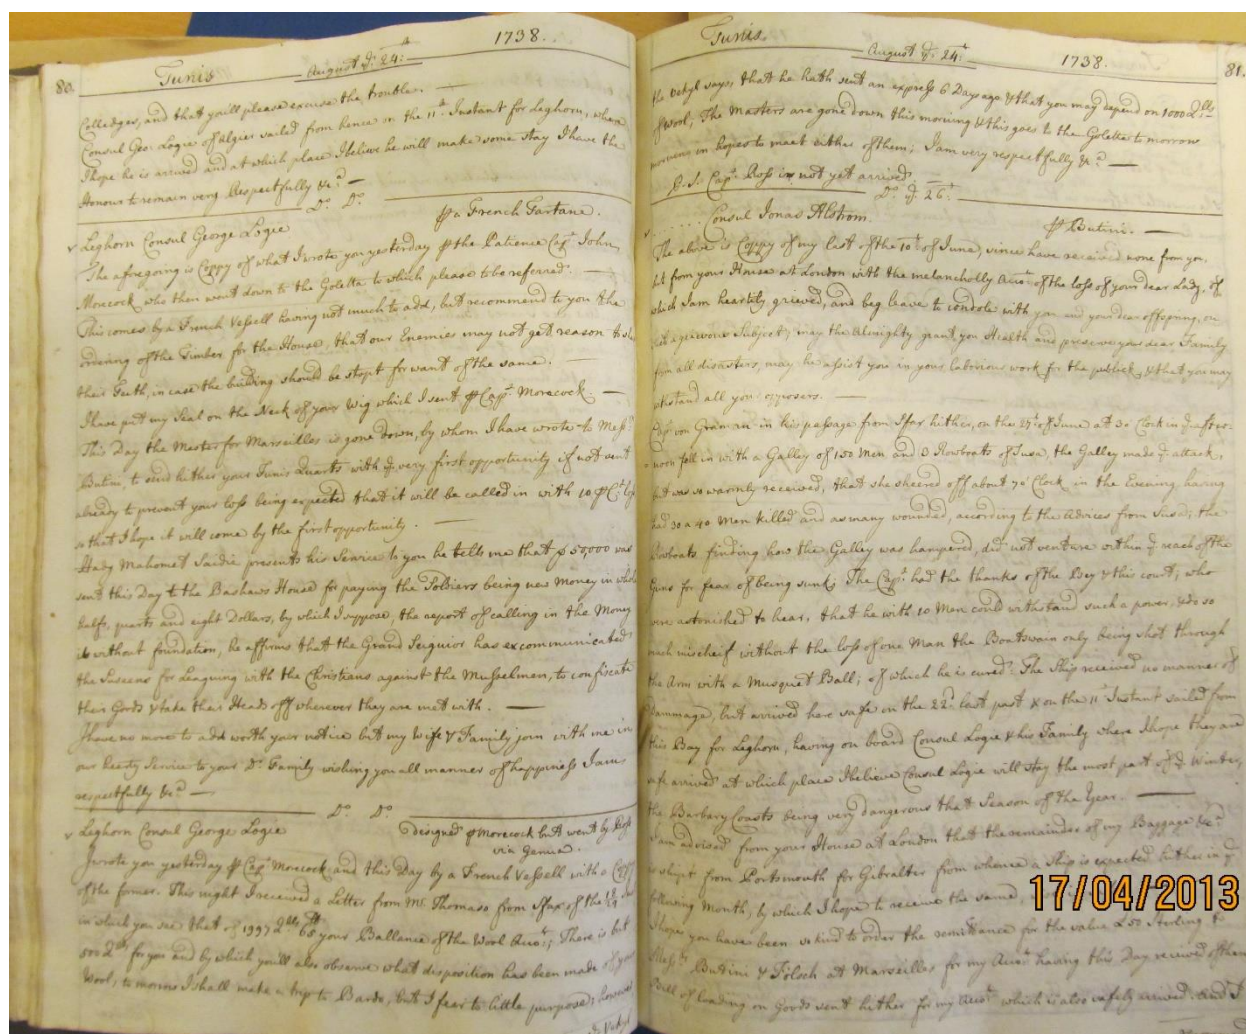 80.
Tunis
August ye. 24th:
1738.
Colledges, and that you'll please excuse the trouble. —
Consul Geo: Logie of Algier sailed from hence on the 11th. Instant for Leghorn, where
I hope he is arrived and at which place I belive he will make some stay I have the
Honour to remain very Respectfully &ca. —
Do. Do.
Leghorn Consul George Logie
a French Tartane.
The aforegoing is Coppy of what I wrote you yesterday the Patience Capt. John
Morecock who then went down to the Goletta to which please to be referred. —
This comes by a French Vessell having not much to add, but recommend to you the
ordering of the Timber for the House, that our Enemies may not get reason to
their Teeth, in case the building should be stopt for want of the same. —
I have put my Seal on the Neck of your Wig which I sent Capt. Morecock —
This Day the Master for Marseilles is gone down, by whom I have wrote to Messrs.
Butini, to send hither your Tunis Quarts with ye. very first opportunity if not sent
already to prevent your loss being expected that it will be called in with 10 Ct. loss
so that I hope it will come by the first opportunity. —
Hady Mahomet Saidie presents his Service to you he tells me that 50,000 was
sent this Day to the Bashaws House for paying the Soldiers being new money in whole
halfs, quarts and eight Dollars, by which I suppose, the report of calling in the Money
is without foundation, he affirms that the Grand Seignior has excommunicated
the for Leaguing with the Christians against the Musselmen, to confiscate
their Goods & take their Heads off wherever they are met with. —
I have no more to add worth your notice but my Wife & Family join with me in
our hearty Service to your Dr. Family wishing you all manner of happiness I am
respectfully &ca. —
Do. Do.
Leghorn Consul George Logie
designed Morecock but went by
via Genua.
I wrote you yesterday Capt. Morecock and this Day by a French Vessell with a Coppy
of the former. This night I received a Letter from Mr. Thomaso from Sfax of the
in which you see that of 1997 your Ballance of the Wool Acct.; There is but
500 for you and by which you'll also observe what disposition has been made of your
Wool, to morrow I shall make a trip to Bardo, but I fear to little purpose; however
Tunis
August ye. 24th:
1738.
81.
the Vekyl says, that he hath sent an express 6 Days ago & that you may depend on 1000
of Wool; The Masters are gone down this morning & this goes to the Goletta to morrow
morning in hopes to meet either of them; I am very respectfully &ca. —
P.S. Capt. Ross is not yet arrived.
Do. ye. 26th.
Consul Jonas Alstrom.
Butini. —
The above is Coppy of my last of the 10th. of June, since have received none from you,
but from your House at London with the melancholly Acct. of the loss of your dear Lady, of
which I am heartily grieved, and beg leave to condole with you and your dear offspring, on
such a grievous Subject; may the Almighty grant you Health and preserve your dear Family
from all disasters, may he assist you in your laborious work for the publick, & that you may
withstand all your opposers. —
Capt. von Graman in his passage from Sfax hither, on the of June at 3 o Clock in ye. after-
noon fell in with a Galley of 150 Men and Rowboats of Susa, the Galley made ye. attack,
but was so warmly received, that she sheered off about 7 o' Clock in the Evening, having
had 30 a 40 Men killed and as many wounded, according to the Advices from Susa; the
Rowboats finding how the Galley was hampered, did not venture within ye. reach of the
Guns for fear of being sunk; The Capt. had the thanks of the Bey & this court; who
were astonished to hear, that he with 10 Men could withstand such a power, & do so
much mischeif without the loss of one Man the Boatswain only being shot through
the Arm with a Musquet Ball; of which he is cured. The Ship received no manner of
dammage, but arrived here safe on the 22d. last past & on the 11th Instant sailed from
this Bay for Leghorn, having on board Consul Logie & his Family where I hope they are
safe arrived at which place I believe Consul Logie will stay the most part of ye. Winter,
the Barbary Coasts being very dangerous that Season of the Year. —
I am advised from your House at London that the remainder of my Baggage &ca.
is shipt from Portsmouth for Gibralter from whence a Ship is expected hither in ye.
following Month, by which I hope to receive the same,
I hope you have been so kind to order the remittance for the value £50 Sterling to
Messrs. Butini & Fölsch at Marseilles for my Acct. having this Day received of them
Bill of loading on Goods sent hither for my Acct. which is also safely arrived. And I
17/04/2013